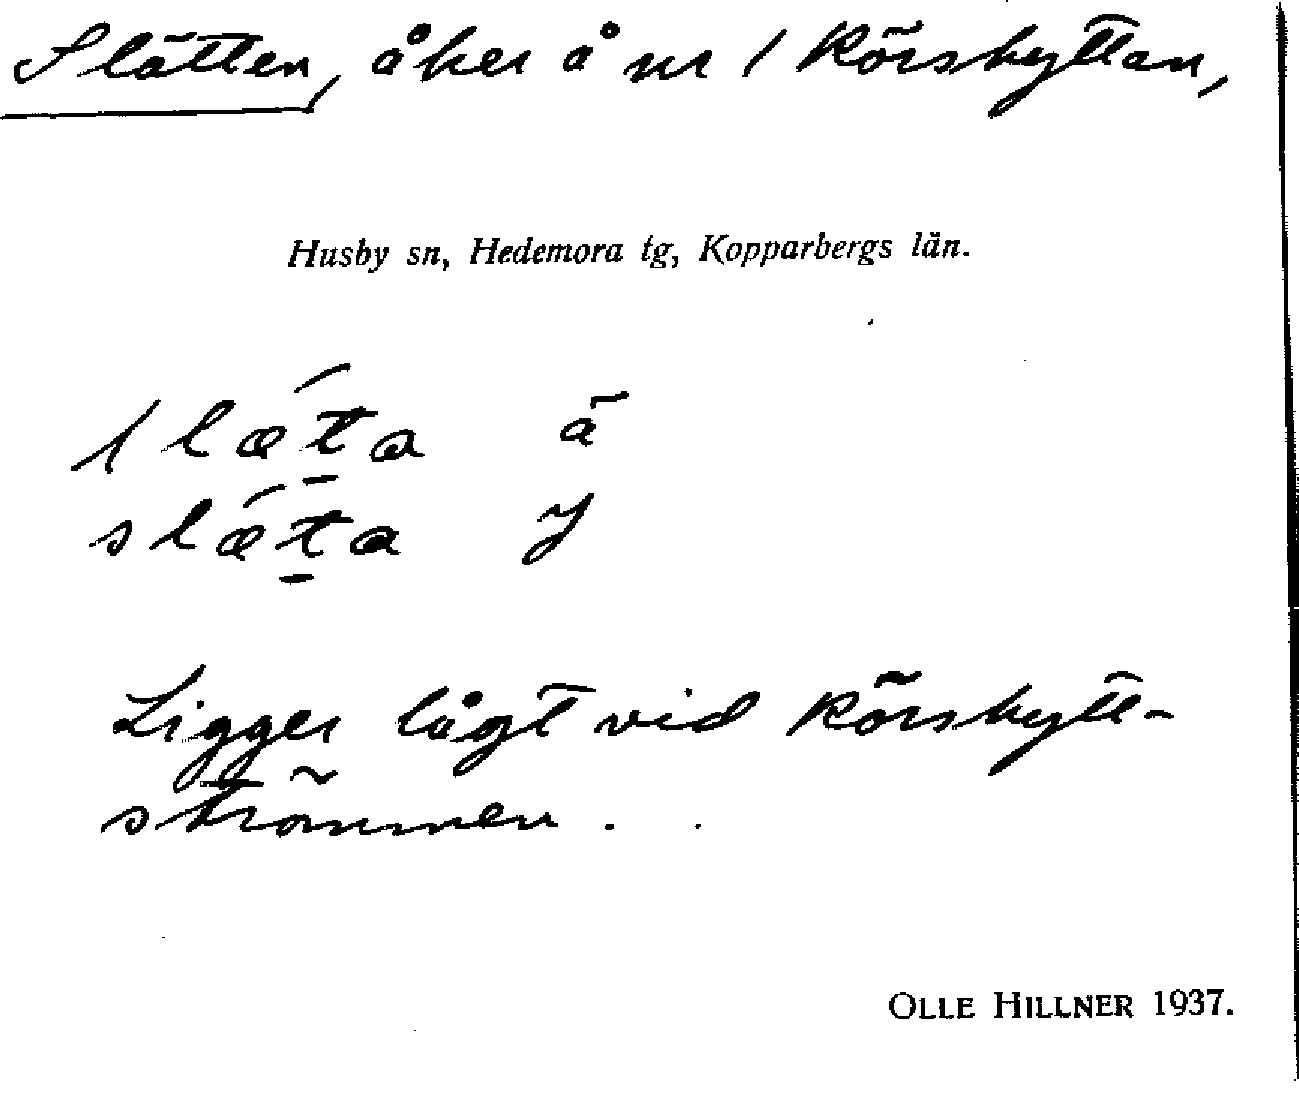 Slätten, åker å nr 1 Rörshyttan,
Husby sn, Hedemora tg, Kopparbergs län.
slǽt̠a ä
slǽt̠a y
Ligger lågt vid Rörshytt-
strömmen.
OLLE HILLNER 1937.